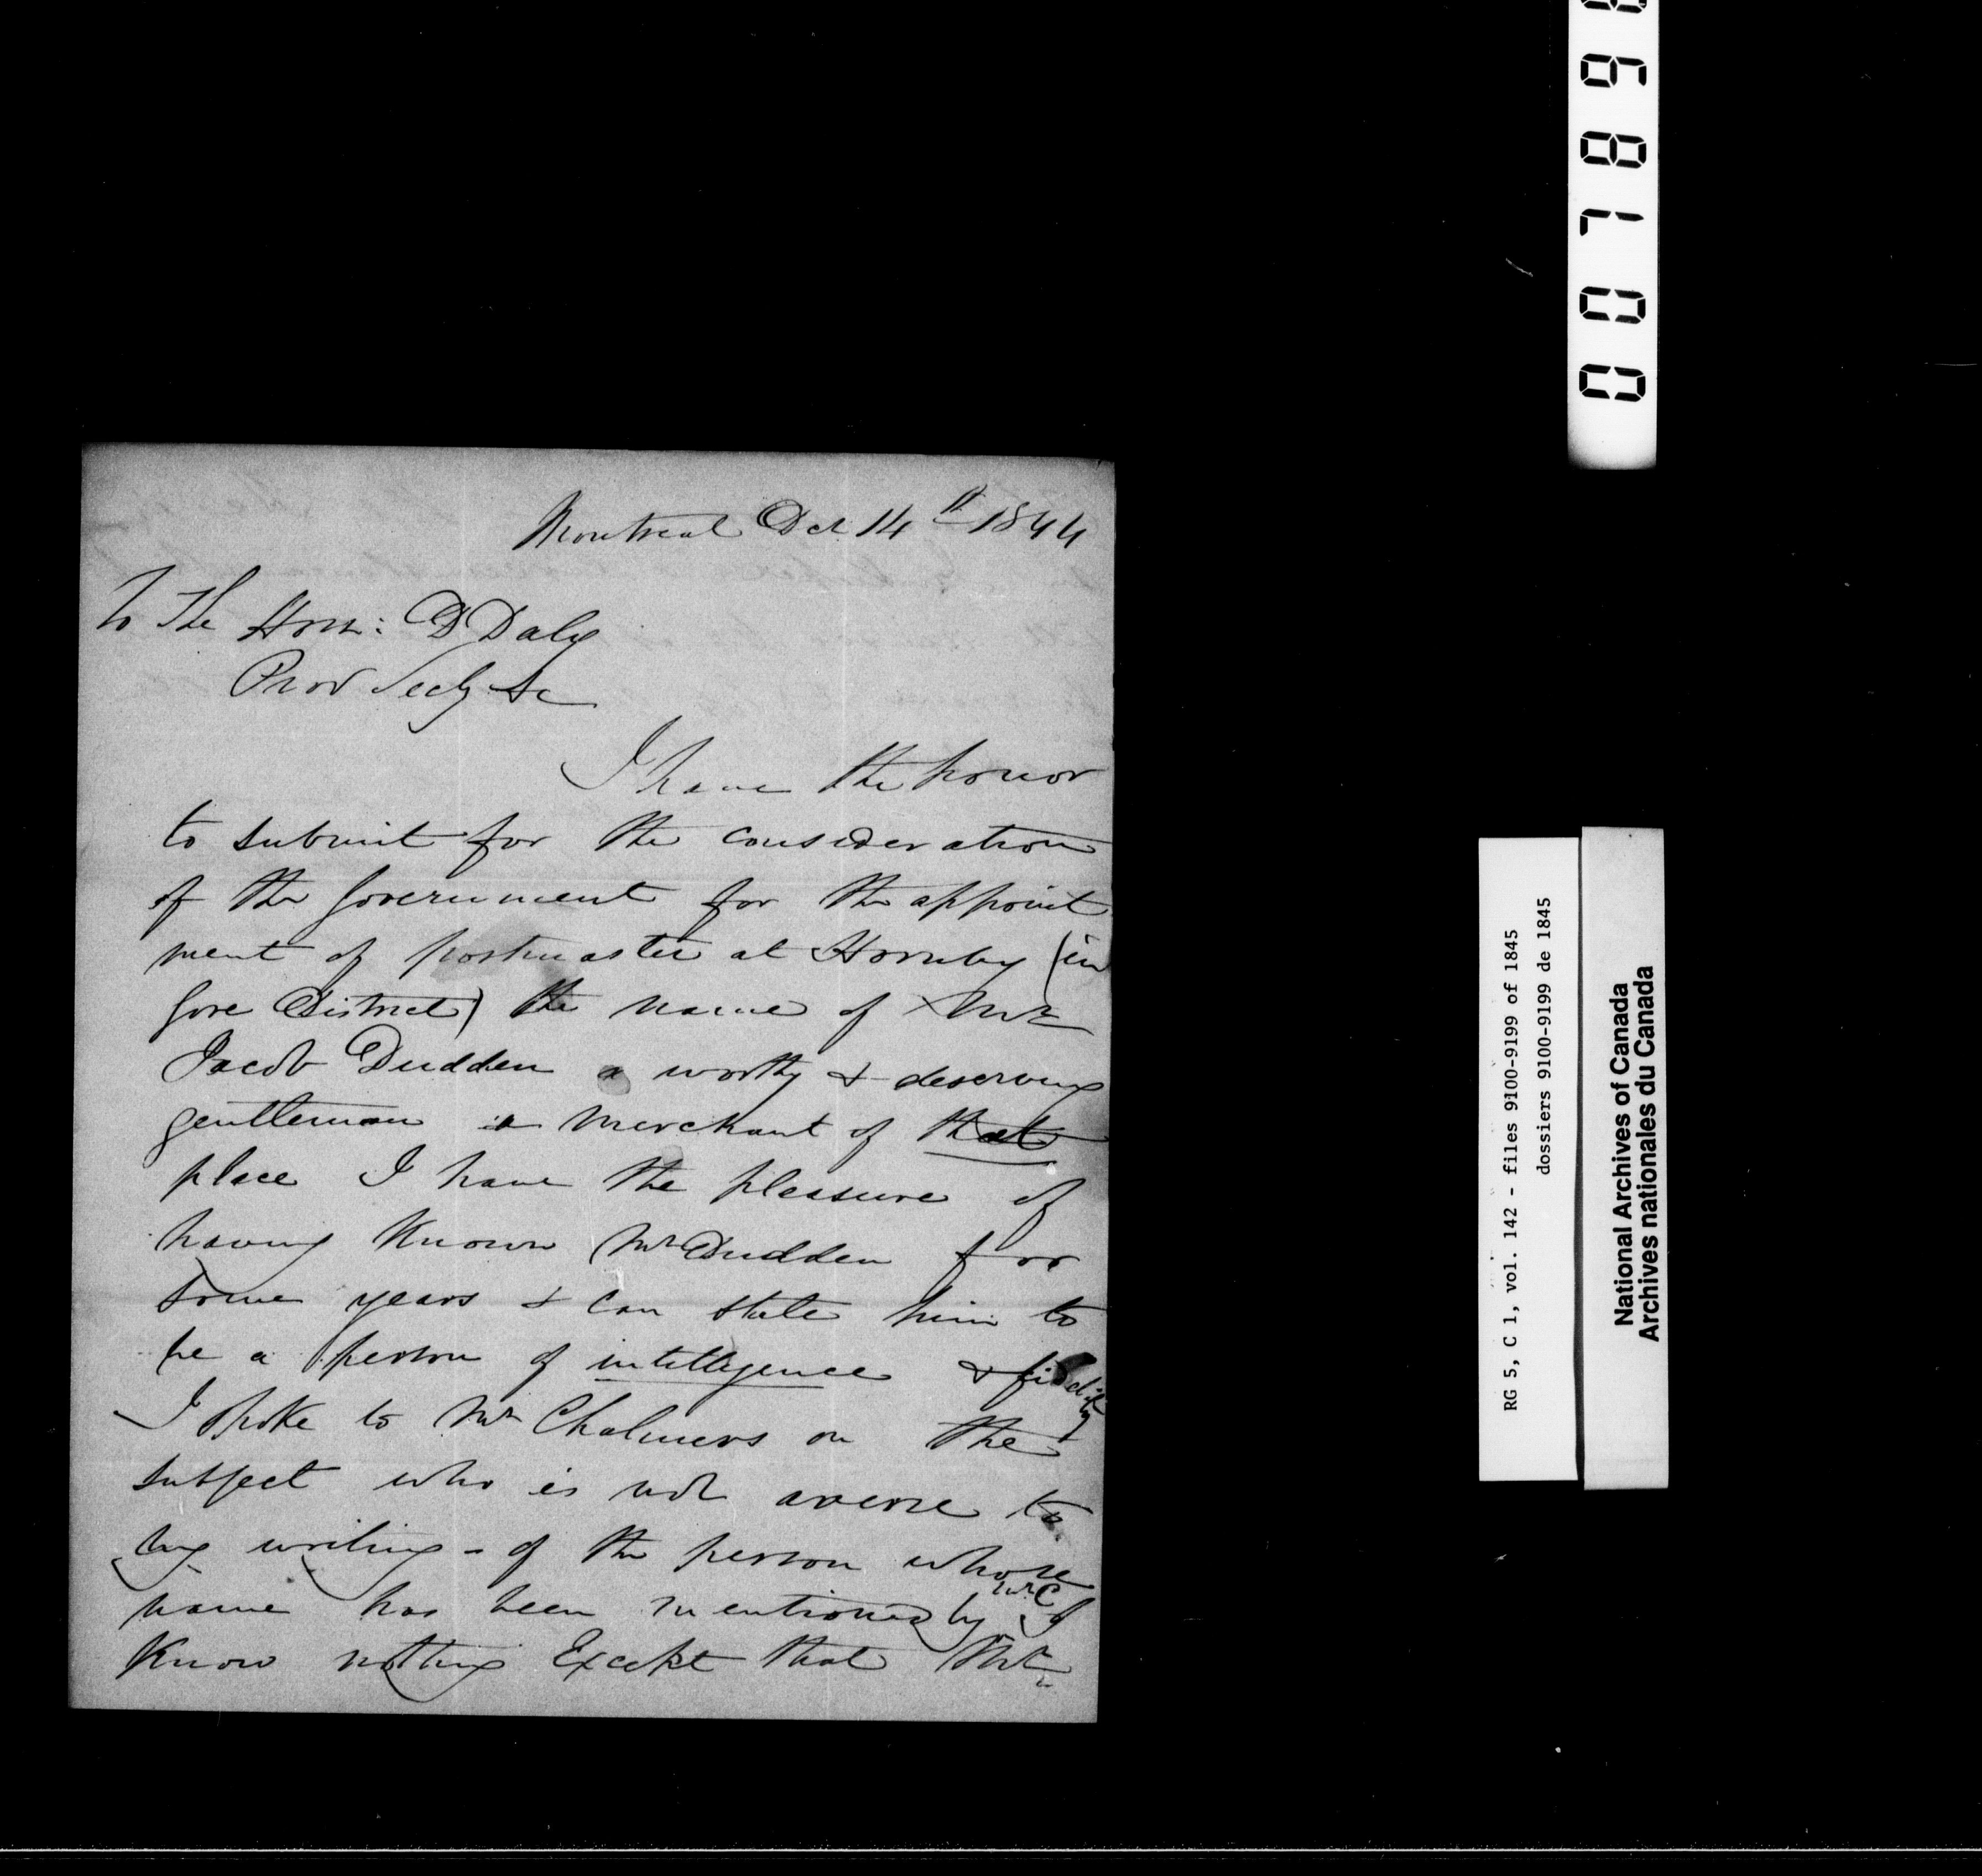 Montreal Oct 14th 1844
To The Hon: D Daly
Prov Secly &c
I have the honor
to submit for the consideration
of the Government for the appoint
ment of postmaster at Hornby (in
Gore District) the name of Mr
Jacob Dudden a worthy & deserving
gentleman a merchant of that
place I have the pleasure of
having known Mr Dudden for
some years & can state him to
be a person of intelligence & fidelity
I spoke to Mr Chalmers on the
subject who is not averse to
my writing - of the person whose
name has been mentioned by Mr C I
know nothing Except that Mr
RG 5, C 1, vol. 142 - files 9100-9199 of 1845
dossiers 9100-9199 de 1845
National Archives of Canada
Archives nationales du Canada